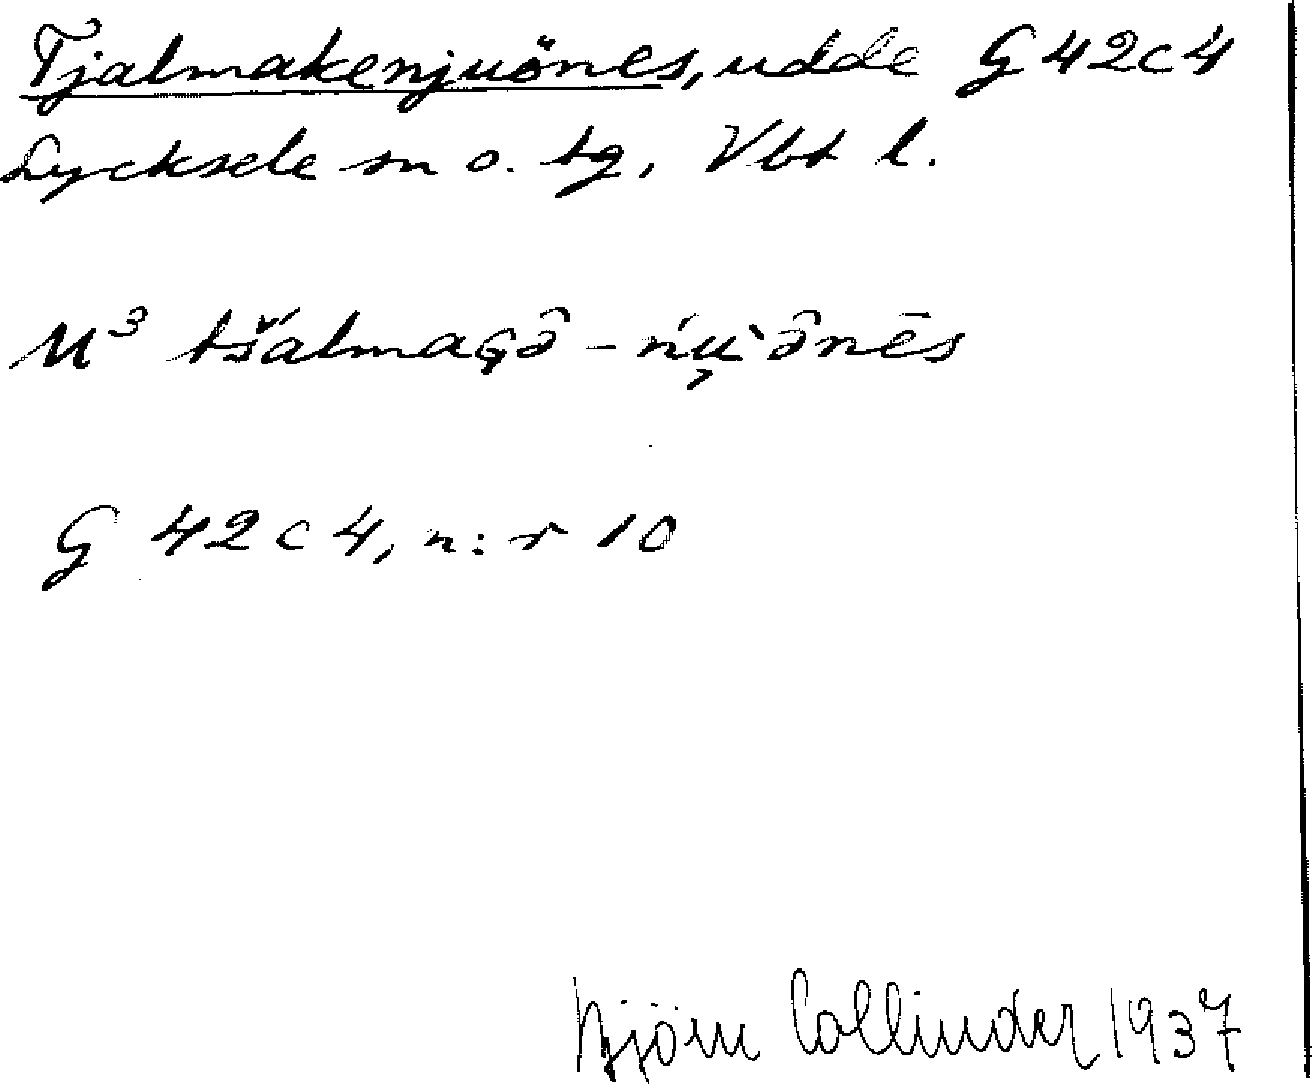 Tjalmakenjuönes, udde G 42c4
Lycksele sn o. tg, Vbt l.
M³ tšálmaɢə̑ - ńu̧`ə̑nēs
G 42 c 4, n:r 10
Björn Collinder 1937